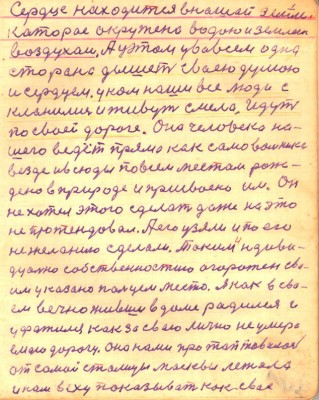 Сердце находится в нашей земли
каторае окружено водою и землей
воздухам. А у этом у во всем одна
старана дышет сваею душою
и сердцем. у ком наши все люди с
кланились и живут смела, идут
по своей дороге. Она человека на-
шего ведёт прямо как само
везде и всюды по всем местам рож-
дено в природе и присвоено им. Он
не хотел этого сделать даже на это
не претендовал. А его узяли и по его
не желанию сделали. Таким индиви-
дуально собственностию огоротен сва-
им указано получи место. Я как в сва-
ем вечно живши в доме радился и
у фамилия, как за сваю лично не умира
емою дарогу. Она нами протаптовалас
от самой столицы масквы лежала
и нам веху показывает как свае